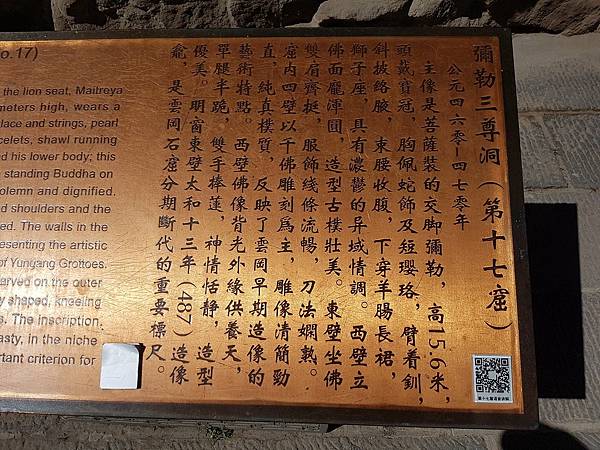 彌勒三尊洞（第十七窟）
公元四六零—四七零年
主像是菩薩裝的交脚彌勒，高15.6米，
頭戴寶冠，胸佩蛇飾及短瓔珞，臂着釧，
斜披絡腋，束腰收腹，下穿羊腸長裙，
獅子座，具有濃鬱的异域情調。西壁立
佛面龐渾圓，造型古樸壯美。東壁坐佛
雙肩齊挺，服飾綫條流暢，刀法嫻熟。
窟内四壁以千佛雕刻爲主，雕像清簡勁
直，純真樸質，反映了雲岡早期造像的
藝術特點。西壁佛像背光外緣供養天，
單腿半跪，雙手捧蓮，神情恬静，造型
優美。明窗東壁太和十三年(487)造像
龕，是雲岡石窟分期斷代的重要標尺。
o.17)
the lion seat, Maitreya
meters high, wears a
lace and strings, pearl
celets, shawl running
d his lower body; this
standing Buddha on
olemn and dignified.
d shoulders and the
ed. The walls in the
esenting the artistic
of Yungang Grottoes.
arved on the outer
y shaped, kneeling
s. The inscription
asty, in the niche
rtant criterion for